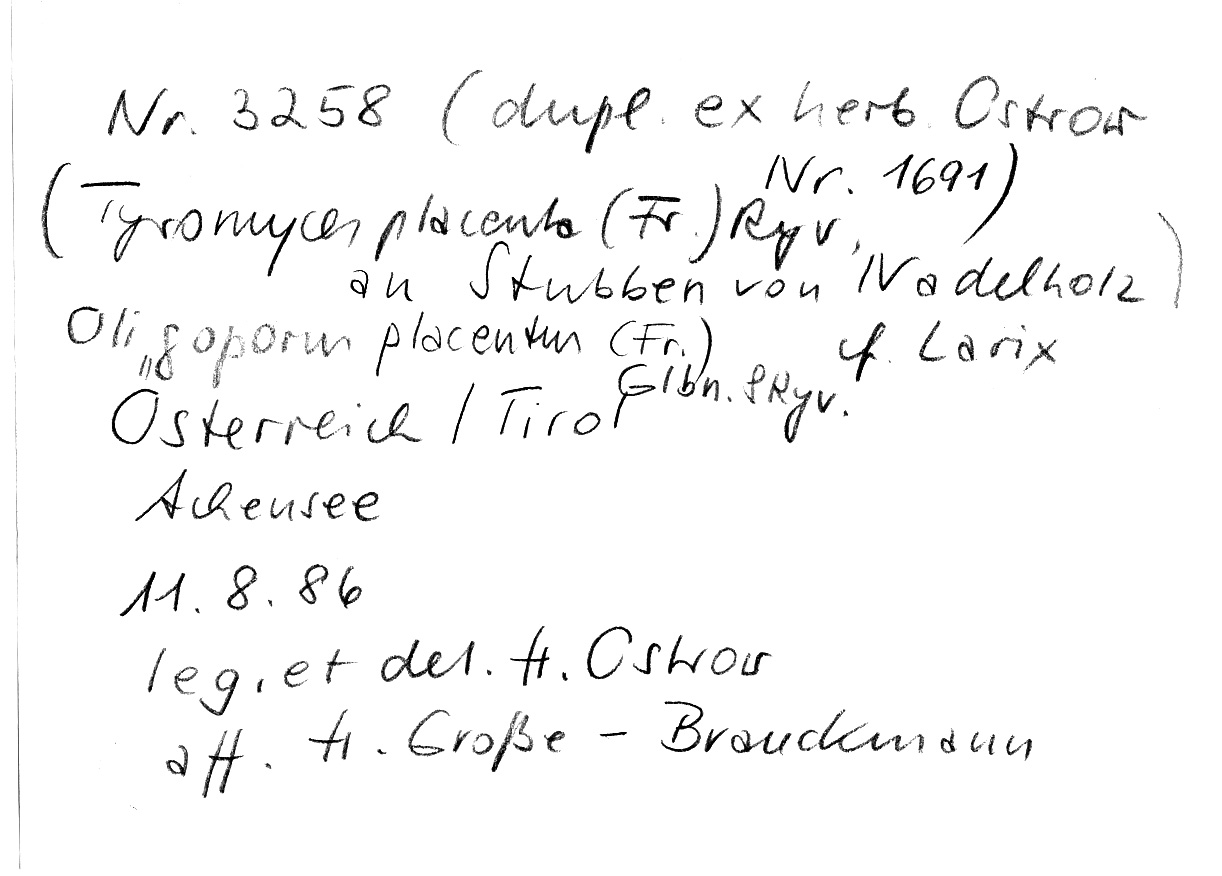 Nr. 3258 (dupl. ex herb. Ostrow
Nr. 1691)
(Tyromyces placenta (Fr.) Ryv.,
an Stubben von Nadelholz)
Oligoporus placentus (Fr.) cf. Larix
Glbn. & Ryv.
Österreich / Tirol
Achensee
11. 8. 86
leg. et det. H. Ostrow
aff. H. Große - Brauckmann